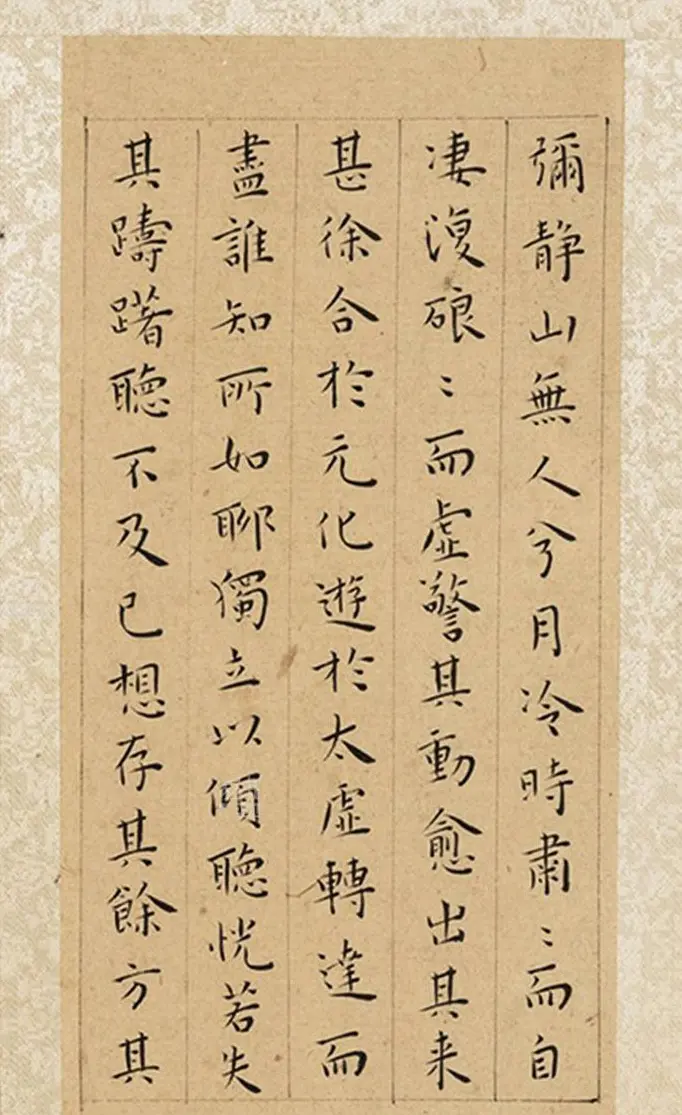 彌静山無人兮月冷時肅〻而自
凄復硠〻而虛警其動愈出其来
甚徐合於元化遊於太虛轉達而
盡誰知所如耶獨立以傾聽恍若失
其躊躇聽不及已想存其餘方其